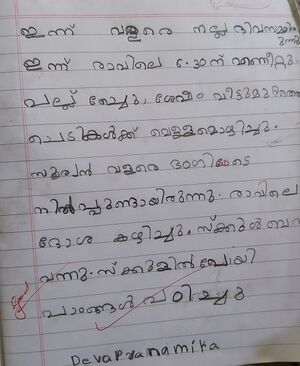 ഇന്ന് വളരെ നല്ല ദിവസമായി
രുന്നു
ഇന്ന് രാവിലെ 6.30ന് എണീറ്റു.
പല്ല് തേച്ചു, ശേഷം വീട്ടുമുറ്റത്തെ
ചെടികൾക്ക് വെള്ളമൊഴിച്ചു.
സൂര്യൻ വളരെ ഭംഗിയോടെ
നിൽപ്പുണ്ടായിരുന്നു. രാവിലെ
ദോശ കഴിച്ചു. സ്ക്കൂൾ ബസ്
വന്നു. സ്ക്കൂളിൽ പോയി
പാഠങ്ങൾ പഠിച്ചു
Devapranamika